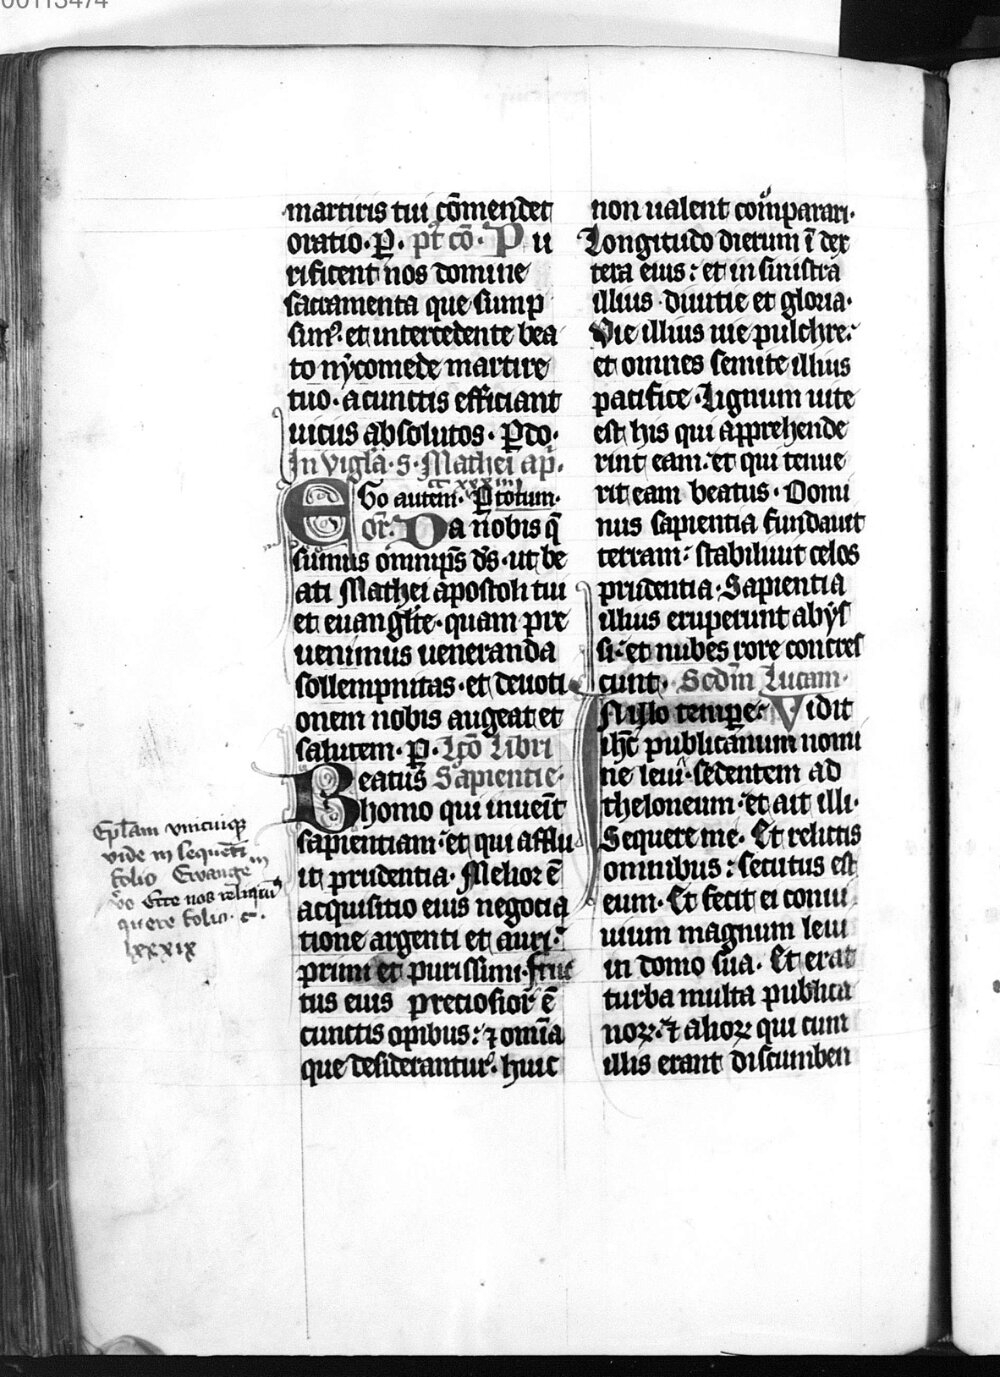 00113474
martiris tui cōmendet
oratio. P̲. pt̄ cō. Pu
rificent nos domine
sacramenta que sump
sim⁹. et intercedente bea
to nẏcomede martire
tuo. a cunctis efficiant
uicus absolutos. P̲ do.
In vigl̄a. s. Mathei ap̄.
cc xxxiiij
Ego autem. P̲ totum.
or̄. Da nobis q̄
sumus omnip̄s d̄s. ut be
ati Mathei apostoli tui
et euangl̄te. quam pre
uenimus ueneranda
sollempnitas. et deuoti
onem nobis augeat et
salutem. P̲. Lc̄o libri
Beatus Sapientie.
homo qui inuenit
sapientiam. et qui afflu
it prudentia. Melior ē
acquisitio eius negocia
tione argenti et auri.
primi et purissimi. fruc
tus eius preciosior ē
cunctis opibus: ⁊ omīa
que desiderantur. huic
non ualent cōparari.
Longitudo dierum ī dex
tera eius: et in sinistra
illius diuitie et gloria.
Vie illius uie pulchre:
et omnes semite illius
pacifice. Lignum uite
est his qui apprehende
rint eam. et qui tenue
rit eam beatus. Domi
nus sapientia fundauit
terram: stabiliuit celos
prudentia. Sapientia
illius eruperunt abẏs
si: et nubes rore concres
cunt. Scdm̄ Lucam.
In illo tempe: Vidit
ih̄c publicanum nomi
ne leui. sedentem ad
theloneum. et ait illi.
Sequere me. Et relictis
omnibus: secutus est
eum. Et fecit ei conui
uium magnum leui
in domo sua. Et erat
turba multa publica
noꝝ. ⁊ alioꝝ qui cum
illis erant discumben
Epl̄am vnicuiqꝫ
vide in sequēti
folio Ewange
v̄o Ecce nos reliqui⁹
quere folio. c.
lxxxix